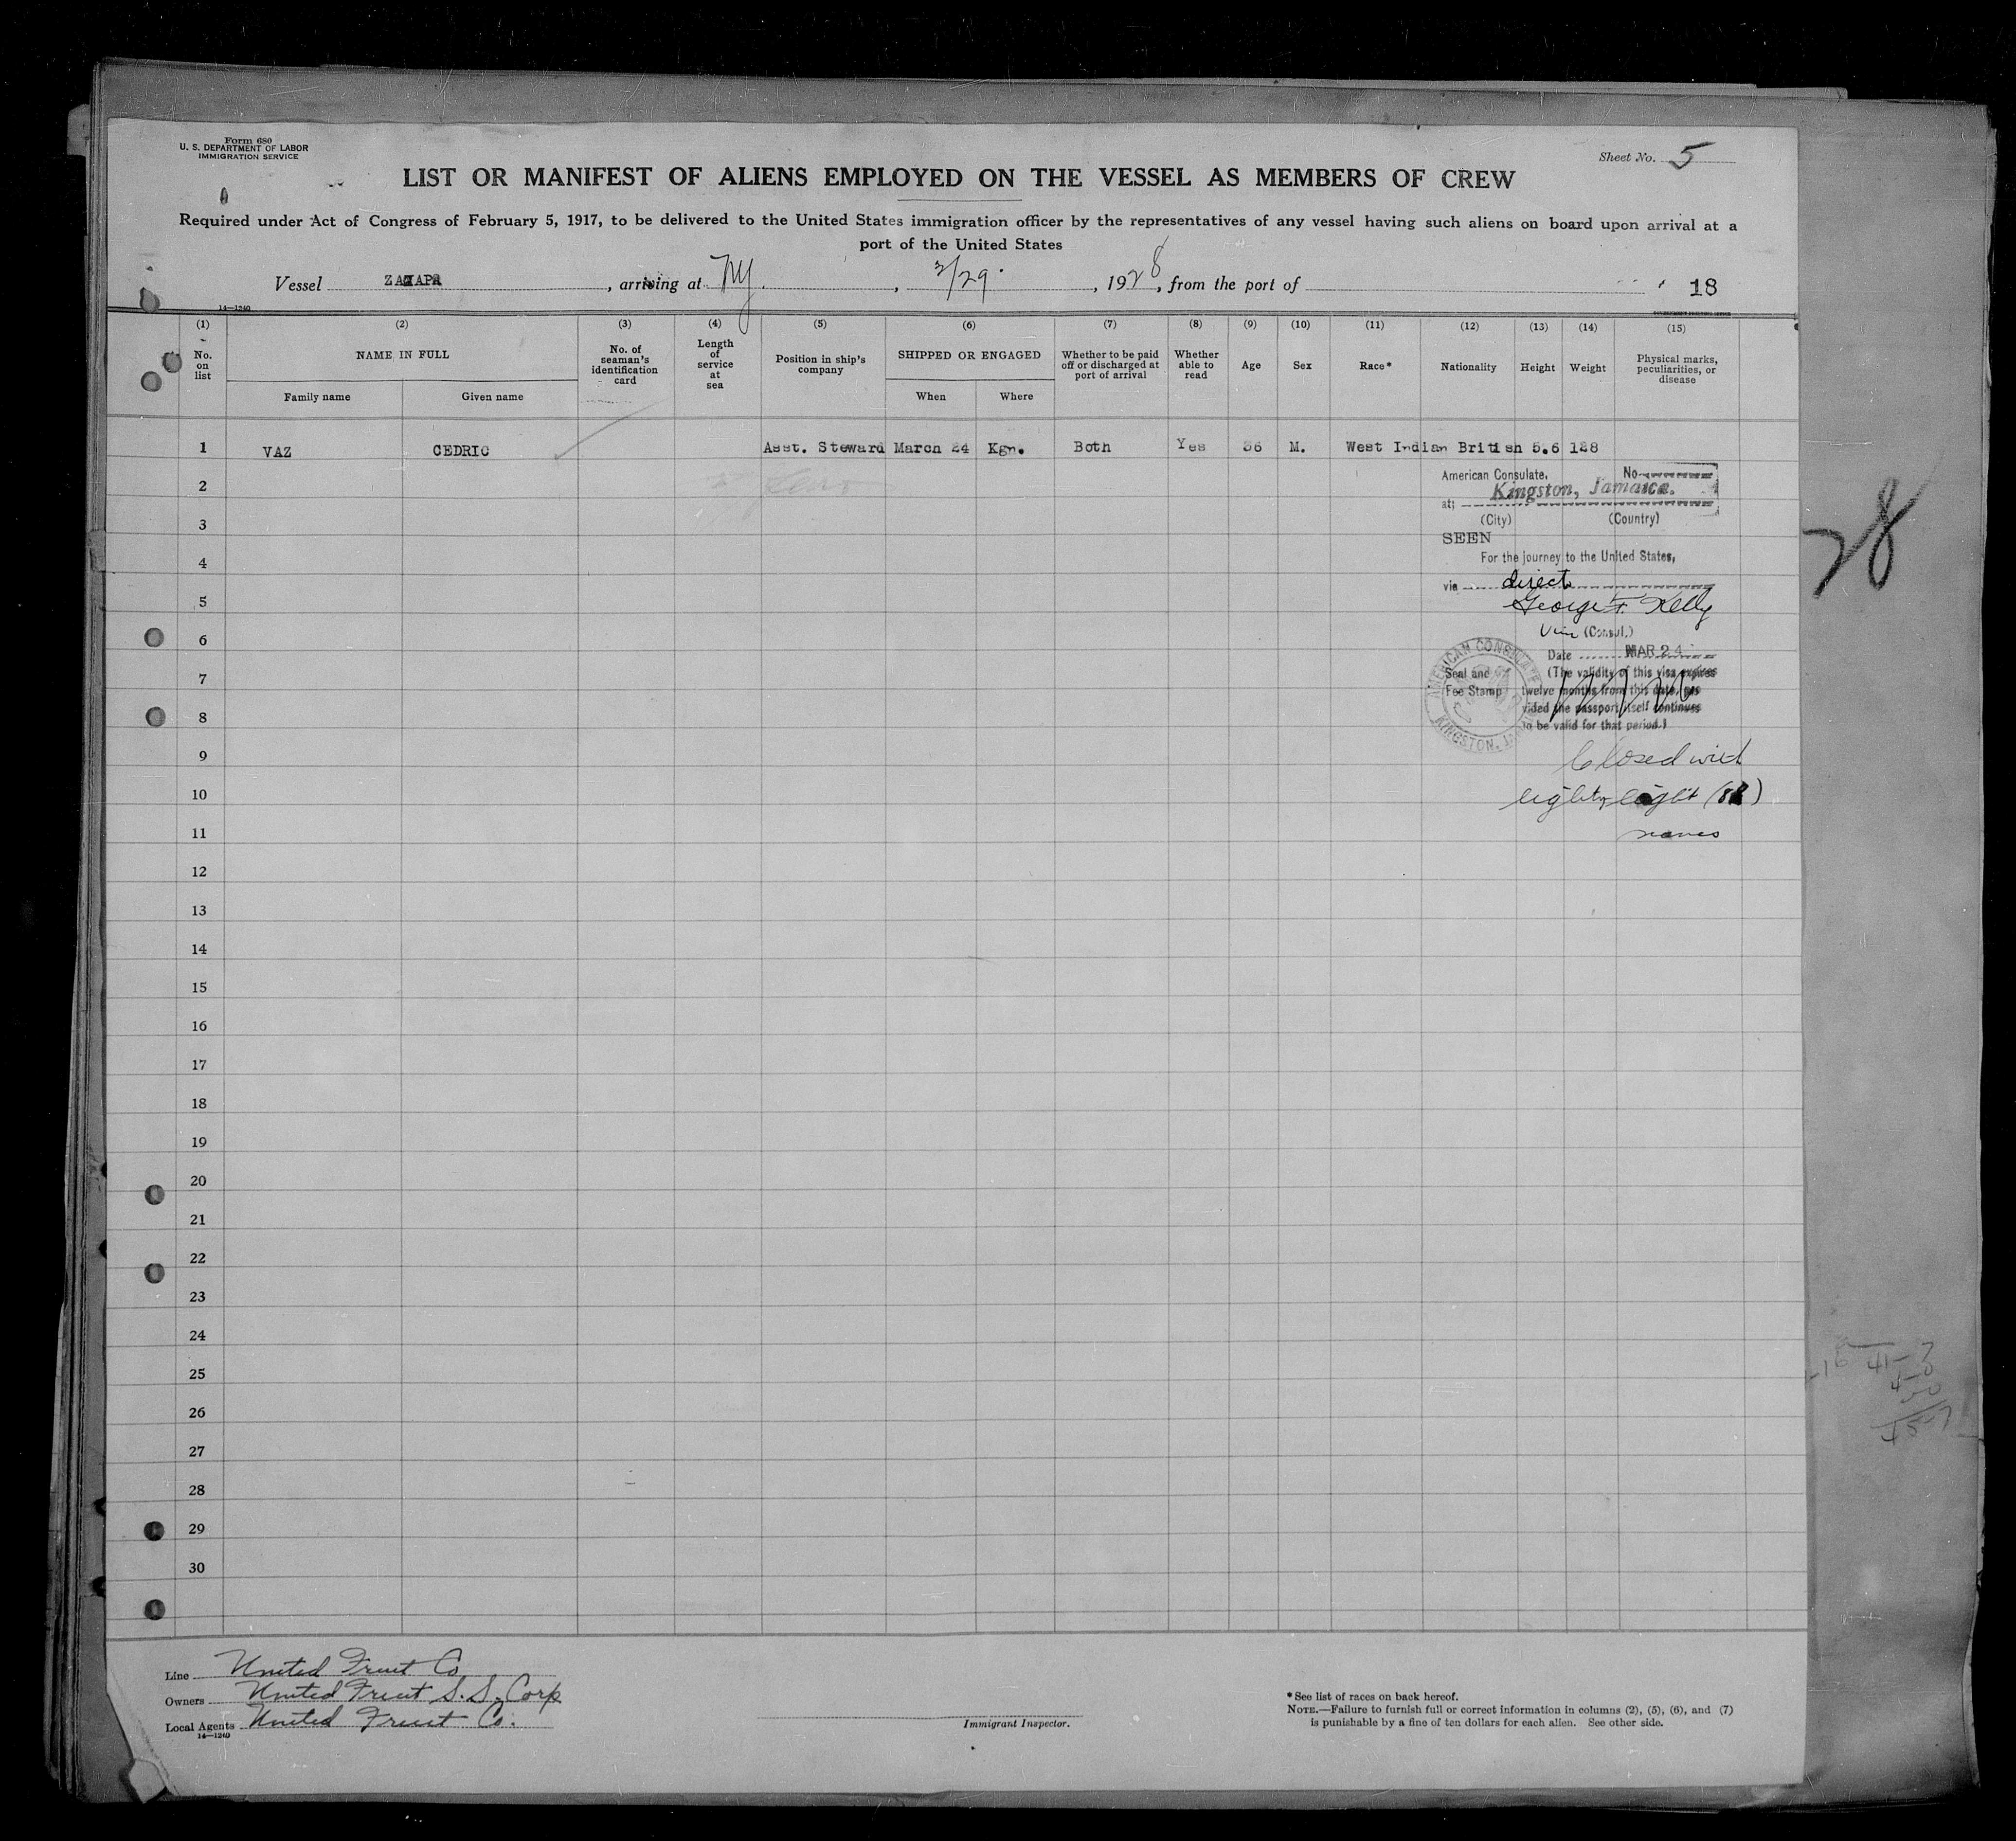 Form 680
U. S. DEPARTMENT OF LABOR
IMMIGRATION SERVICE
Sheet No. 5
LIST OR MANIFEST OF ALIENS EMPLOYED ON THE VESSEL AS MEMBERS OF CREW
Required under Act of Congress of February 5, 1917, to be delivered to the United States immigration officer by the representatives of any vessel having such aliens on board upon arrival at a
port of the United States
Vessel ZACAPA, arriving at NY, 3/29, 1928, from the port of 18
14—1240
(1) (2) (3) (4) (5) (6) (7) (8) (9) (10) (11) (12) (13) (14) (15)
No. on list NAME IN FULL No. of seaman's identification card Length of service at sea Position in ship's company SHIPPED OR ENGAGED Whether to be paid off or discharged at port of arrival Whether able to read Age Sex Race* Nationality Height Weight Physical marks, peculiarities, or disease
Family name Given name When Where
1 VAZ CEDRIC Asst. Steward March 24 Kgn. Both Yes 36 M. West Indian British 5.6 128
2
American Consulate, No
at; Kingston, Jamaica.
3
(City) (Country)
SEEN
4
For the journey to the United States,
via direct
5
George F. Kelly
6
Vice (Consul.)
Date MAR 24
7
Seal and Fee Stamp
(The validity of this visa expires
twelve months from this date, pro
8
vided the passport itself continues
to be valid for that period.)
AMERICAN CONSULATE
KINGSTON, JA
9
Closed with
10
eighty eight (88)
11
names
28
12
13
14
15
16
17
18
19
20
21
22
23
24
25
26
27
28
29
30
Line United Fruit Co
Owners United Fruit S. S. Corp
Local Agents United Fruit Co.
14—1240
Immigrant Inspector.
* See list of races on back hereof.
NOTE.—Failure to furnish full or correct information in columns (2), (5), (6), and (7)
is punishable by a fine of ten dollars for each alien. See other side.